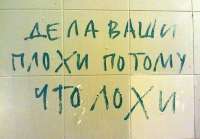 ДЕЛА ВАШИ
ПЛОХИ ПОТОМУ
ЧТО ЛОХИ